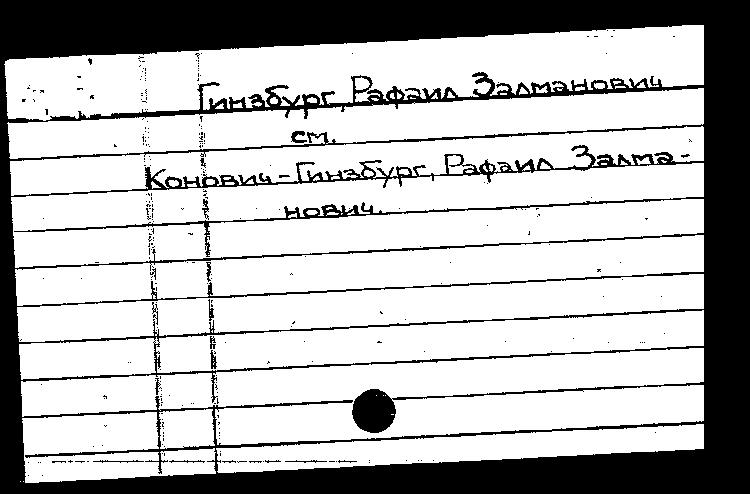 Гинзбург, Рафаил Залманович
см.
Конович-Гинзбург, Рафаил Залма-
нович.